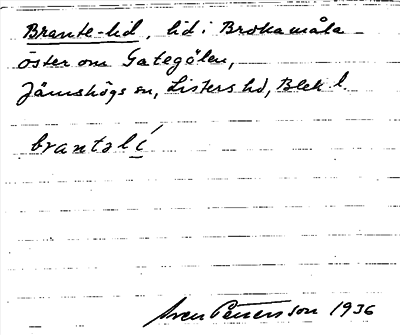 Brante-lid, lid i Brokamåla
öster om Gategölen,
Jämshögs sn, Listers hd, Blek l.
brantəlí
Sven Petersson 1936